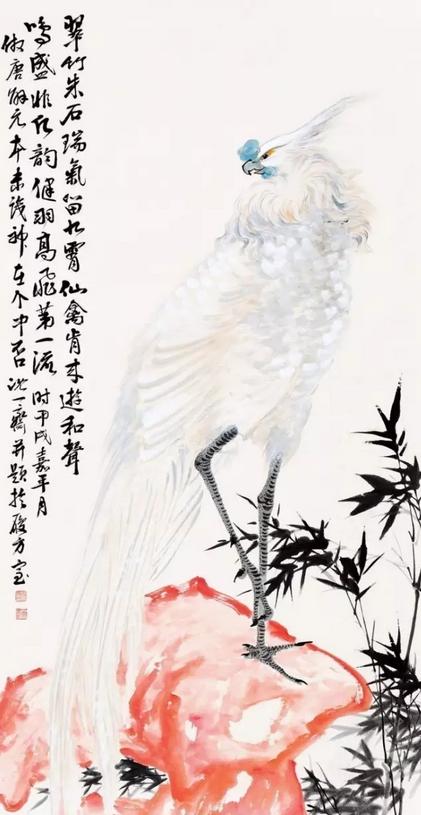 翠竹朱石瑞氣留九霄仙禽肯来遊和聲
鳴盛非凡韵健羽高飛第一流 時甲戌嘉平月
倣唐解元本未識神在个中否 沈一齋并題於方室